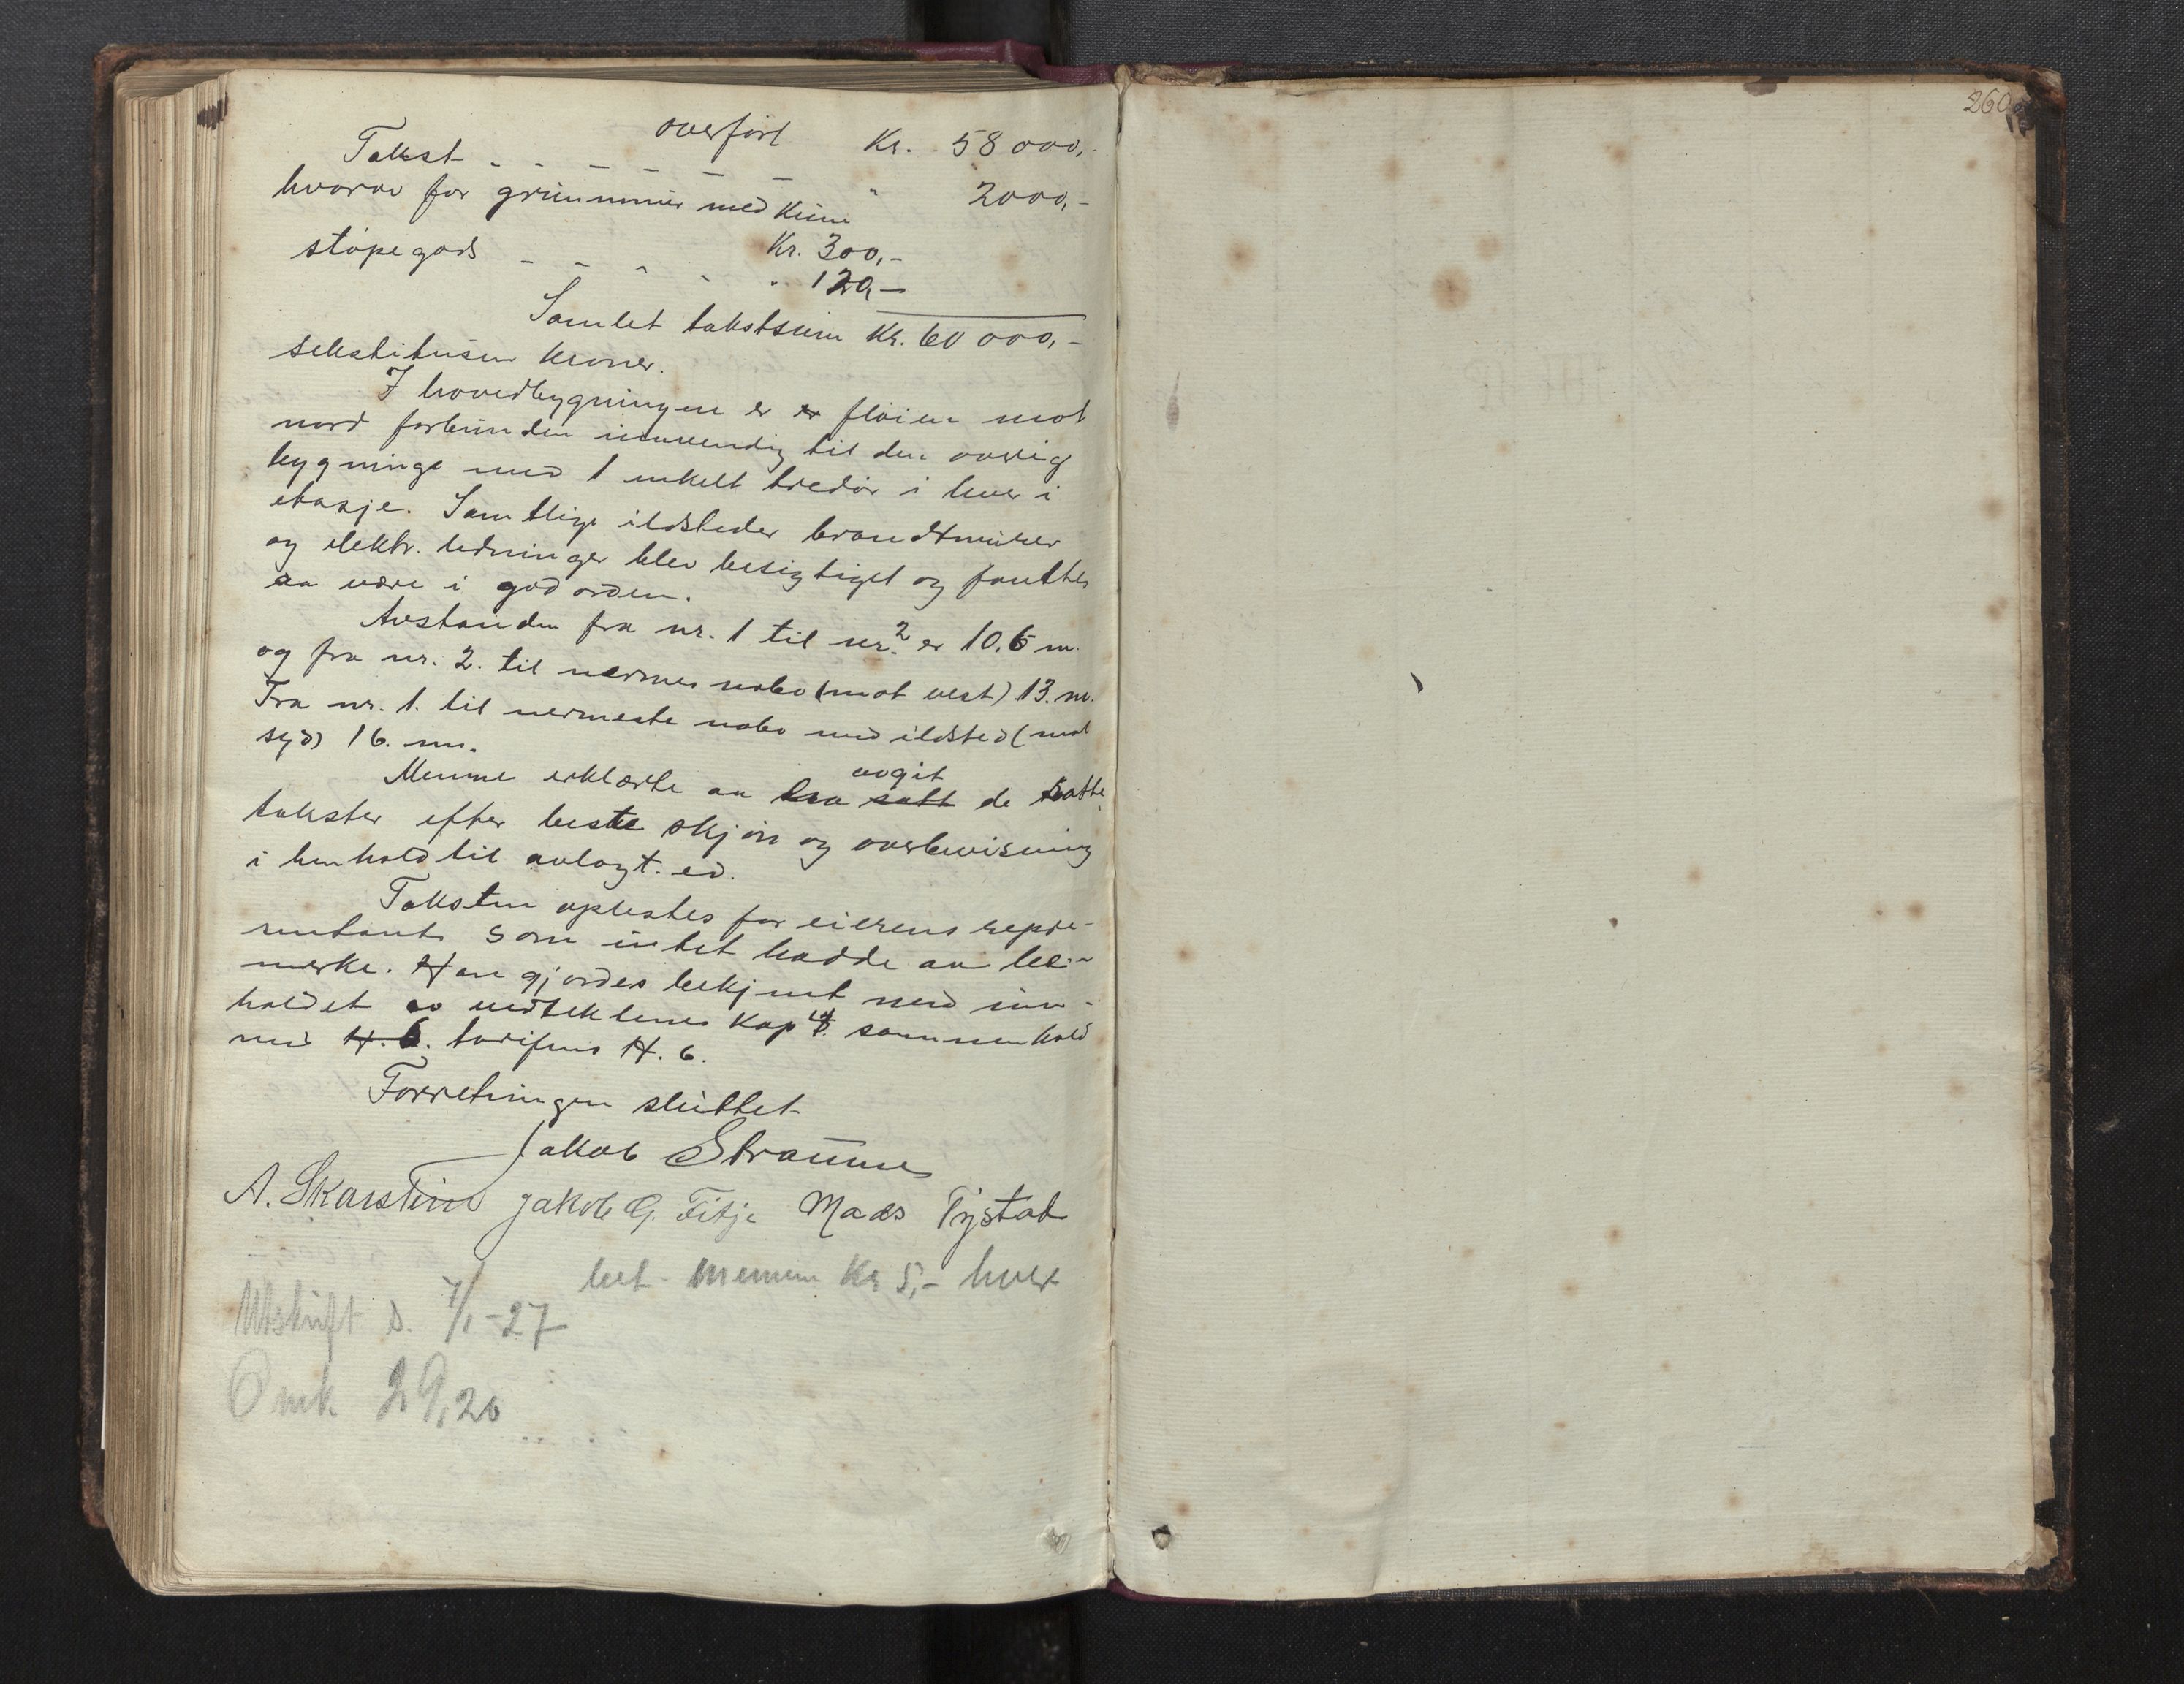 overført Kr. 58 000,-
Takst - - - - - - " 2000,-
hvorav for grunnmur med kum Kr. 300,-
støpegods - - - - " 120,-
Samlet takstsum Kr. 60 000,-
sekstitusen kroner.
I hovedbygningen er er fløien mot
nord forbunden innvendig til den øvrig
bygninge med 1 enkelt tredør i hver i
etasje. Samtlige ildsteder brandtmurer
og elektr. ledninger blev besigtiget og fantes
aa være i god orden.
Avstanden fra nr. 1 til nr. 2 er 10.6 m.
og fra nr. 2. til nærmes nabo (mot vest) 13. m.
Fra nr. 1. til nermeste nabo med ildsted (mot
syd) 16. m.
Menne erklærte aa ha satt avgit de satte
takster efter beste skjøn og overbevisning
i henhold til avlagt. ed.
Taksten oplestes for eierens repre-
sentant som intet hadde aa be-
merke. Han gjordes bekjent med inn-
holdet av vedtektenes Kap 4. sammenhold
med H. 6. tarifens H. 6.
Forretningen sluttet
Jakob Straume
A. Skarstein Jakob G. Fitje Mads Tystad
bet. mennene Kr 5,- hver
Utskrift s. 7/1-27
Omk 29,20
260